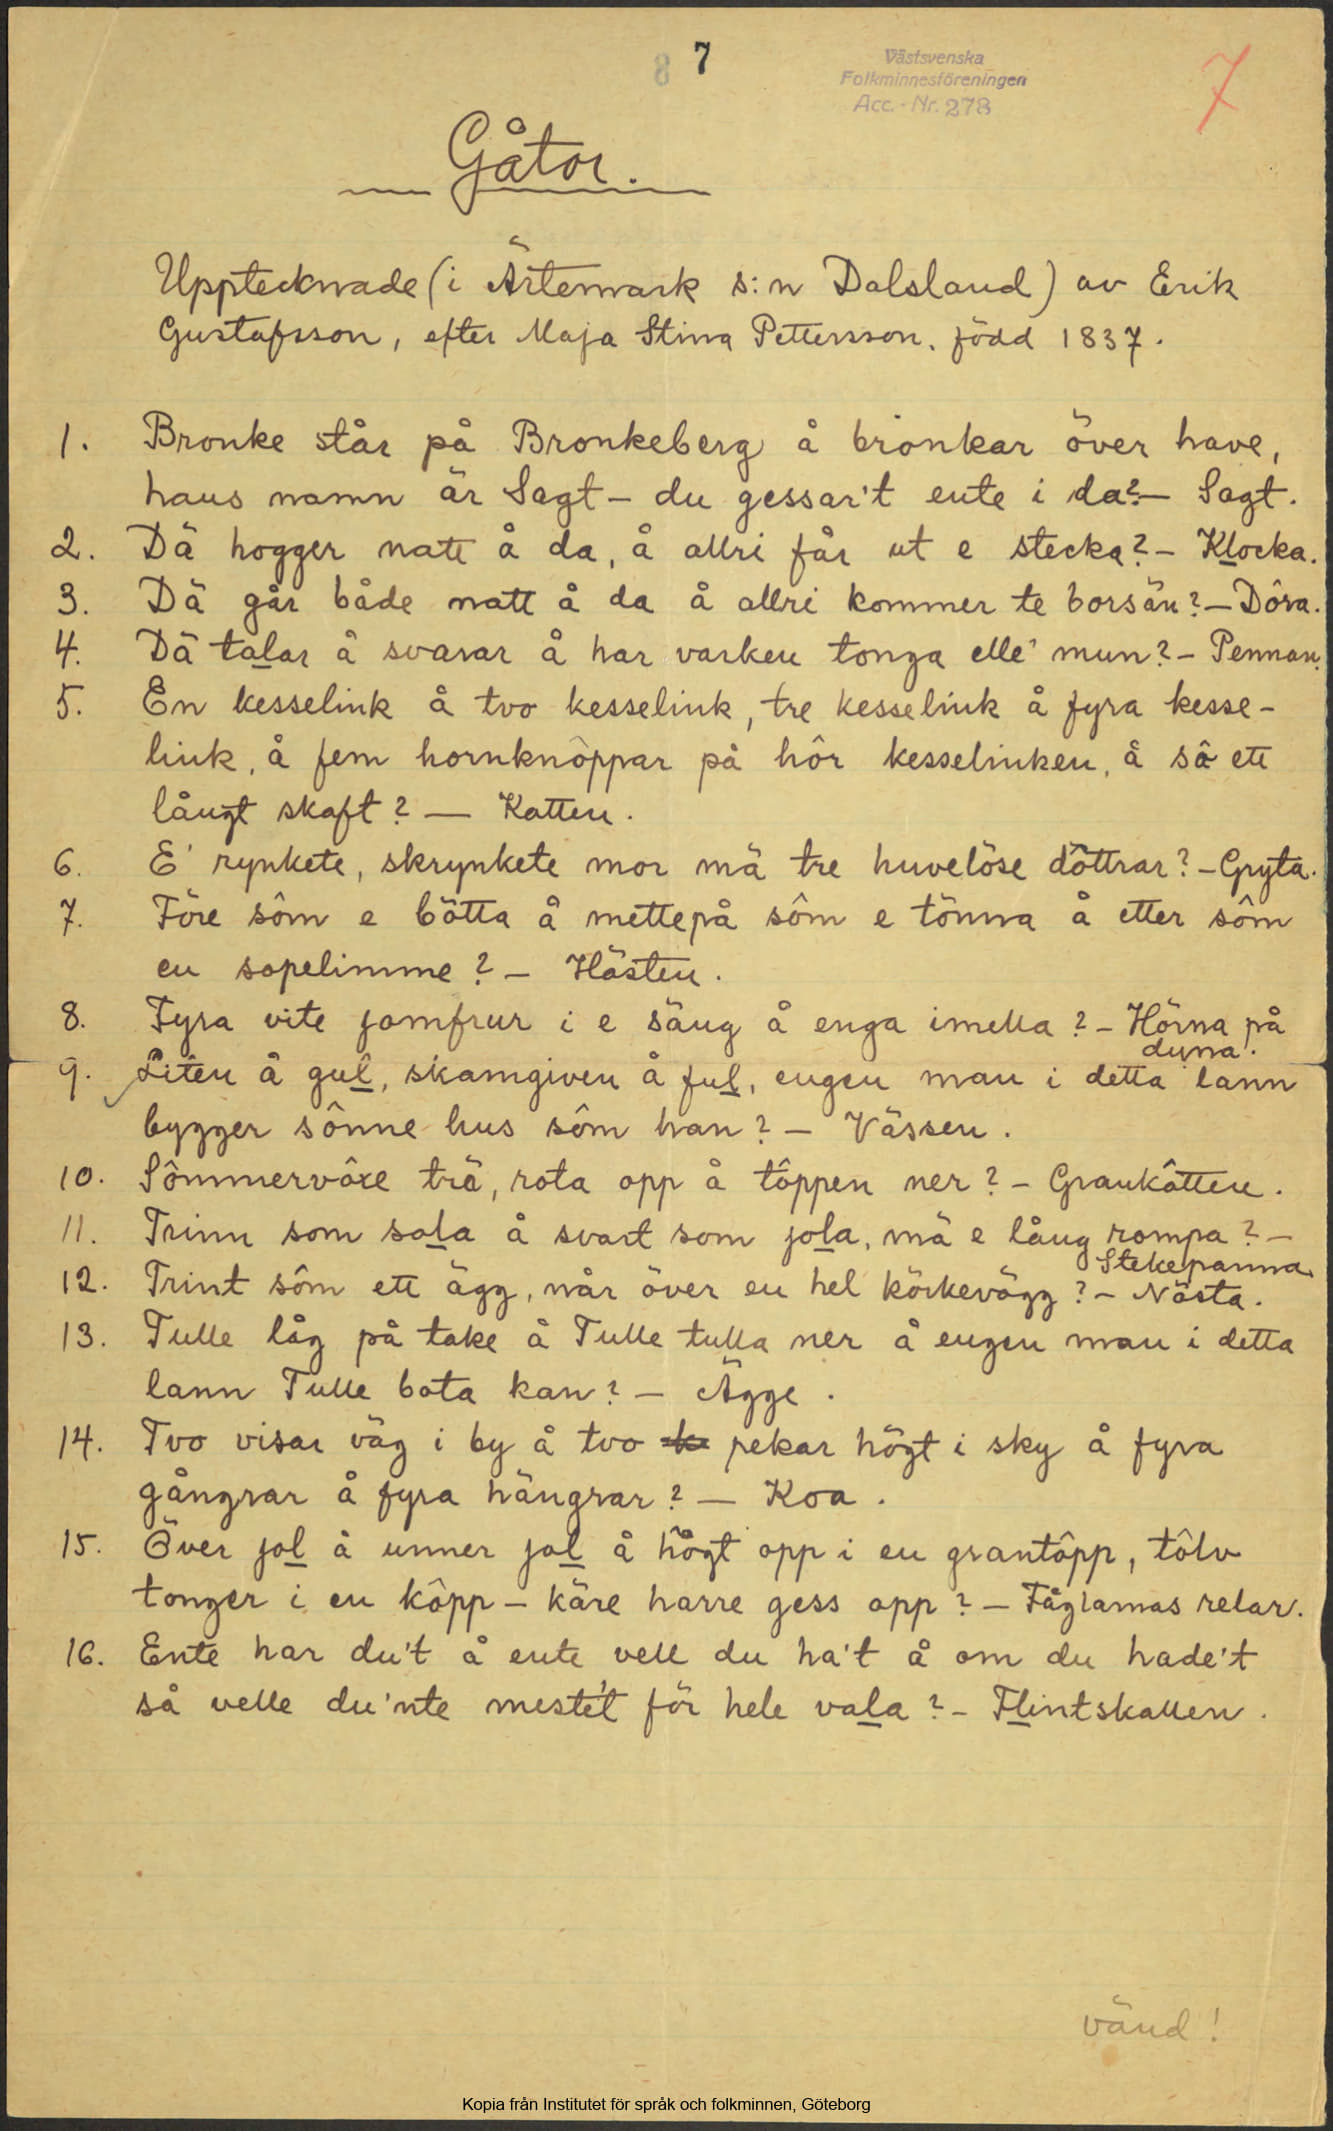 8 7
Västsvenska
Folkminnesföreningen
Acc.-Nr. 278
7
Gåtor.
Upptecknade (i Ärtemark s:n Dalsland) av Erik
Gustafsson, efter Maja Stina Pettersson, född 1837.
1. Bronke står på Bronkeberg å bronkar över have,
hans namn är Sagt – du gessar't ente i da? – Sagt.
2. Dä hogger natt å da, å allri får ut e stecka? – Klocka.
3. Dä går både natt å da å allri kommer te borsän? – Dôra.
4. Dä talar å svarar å har varken tonga elle' mun? – Pennan.
5. En kesselink å tvo kesselink, tre kesselink å fyra kesse-
link, å fem hornknôppar på hôr kesselinken, å så ett
långt skaft? – Katten.
6. E' rynkete, skrynkete mor mä tre huvelöse dôttrar? – Gryta.
7. Före sôm e bôtta å mettepå sôm e tônna å etter sôm
en sopelimme? – Hästen.
8. Fyra vite jomfrur i e säng å enga imella? – Hörna på
dyna.
9. Liten å gul, skamgiven å ful, engen man i detta lann
bygger sônne hus sôm han? – Vässen.
10. Sômmervôxe trä, rota opp å tôppen ner? – Grankôtten.
11. Trinn som sola å svart som jola, mä e lång rompa? –
Stekepanna.
12. Trint sôm ett ägg, når över en hel körkevägg? – Nösta.
13. Tulle låg på take å Tulle tulla ner å engen man i detta
lann Tulle bota kan? – Ägge.
14. Tvo visar väg i by å tvo pekar högt i sky å fyra
gångrar å fyra hängrar? – Koa.
15. Över jol å unner jol å högt opp i en grantôpp, tôlv
tonger i en kôpp – käre harre gess opp? – Fåglarnas relar.
16. Ente har du't å ente vell du ha't å om du hade't
så velle du'nte meste't för hele vala? – Flintskallen.
vänd!
Kopia från Institutet för språk och folkminnen, Göteborg